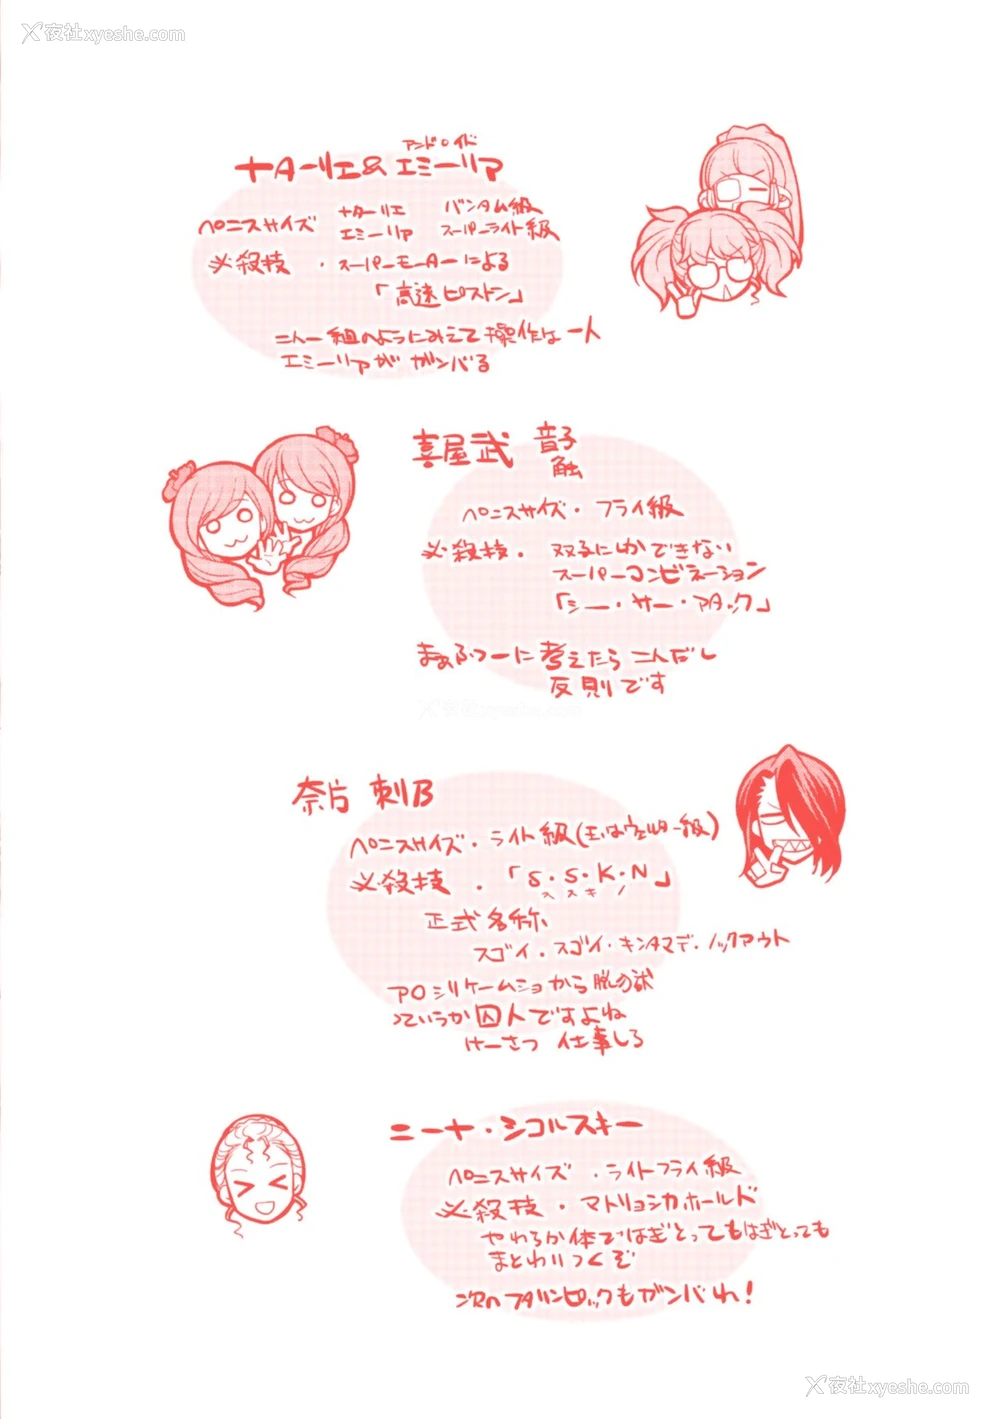 夜社xyeshe.com
アンドロイド
ナターリエ&エミーリア
ペニスサイズ ナターリエ バンタム級
エミーリア スーパーライト級
必殺技・スーパーモーターによる
「高速ピストン」
二人一組のようにみえて操作は一人
エミーリアがガンバる
喜屋武 音子
触
ペニスサイズ・フライ級
必殺技・双子にしかできない
スーパーコンビネーション
「シー・サー・アタック」
まぁふつーに考えたら二人だし
反則です
奈片 刺B
ペニスサイズ・ライト級(玉はウェルター級)
必殺技・「S・S・K・N」
ス ス キ ノ
正式名称
スゴイ・スゴイ・キンタマデ・ノックアウト
アOシリケームショから脱の獄
っていうか囚人ですよね
けーさつ 仕事しろ
ニーナ・シコルスキー
ペニスサイズ・ライトフライ級
必殺技・マトリョシカホールド
やわらか体ではぎとってもはぎとっても
まとわりつくぞ
次のフタリンピックもガンバれ!
夜社xyeshe.com